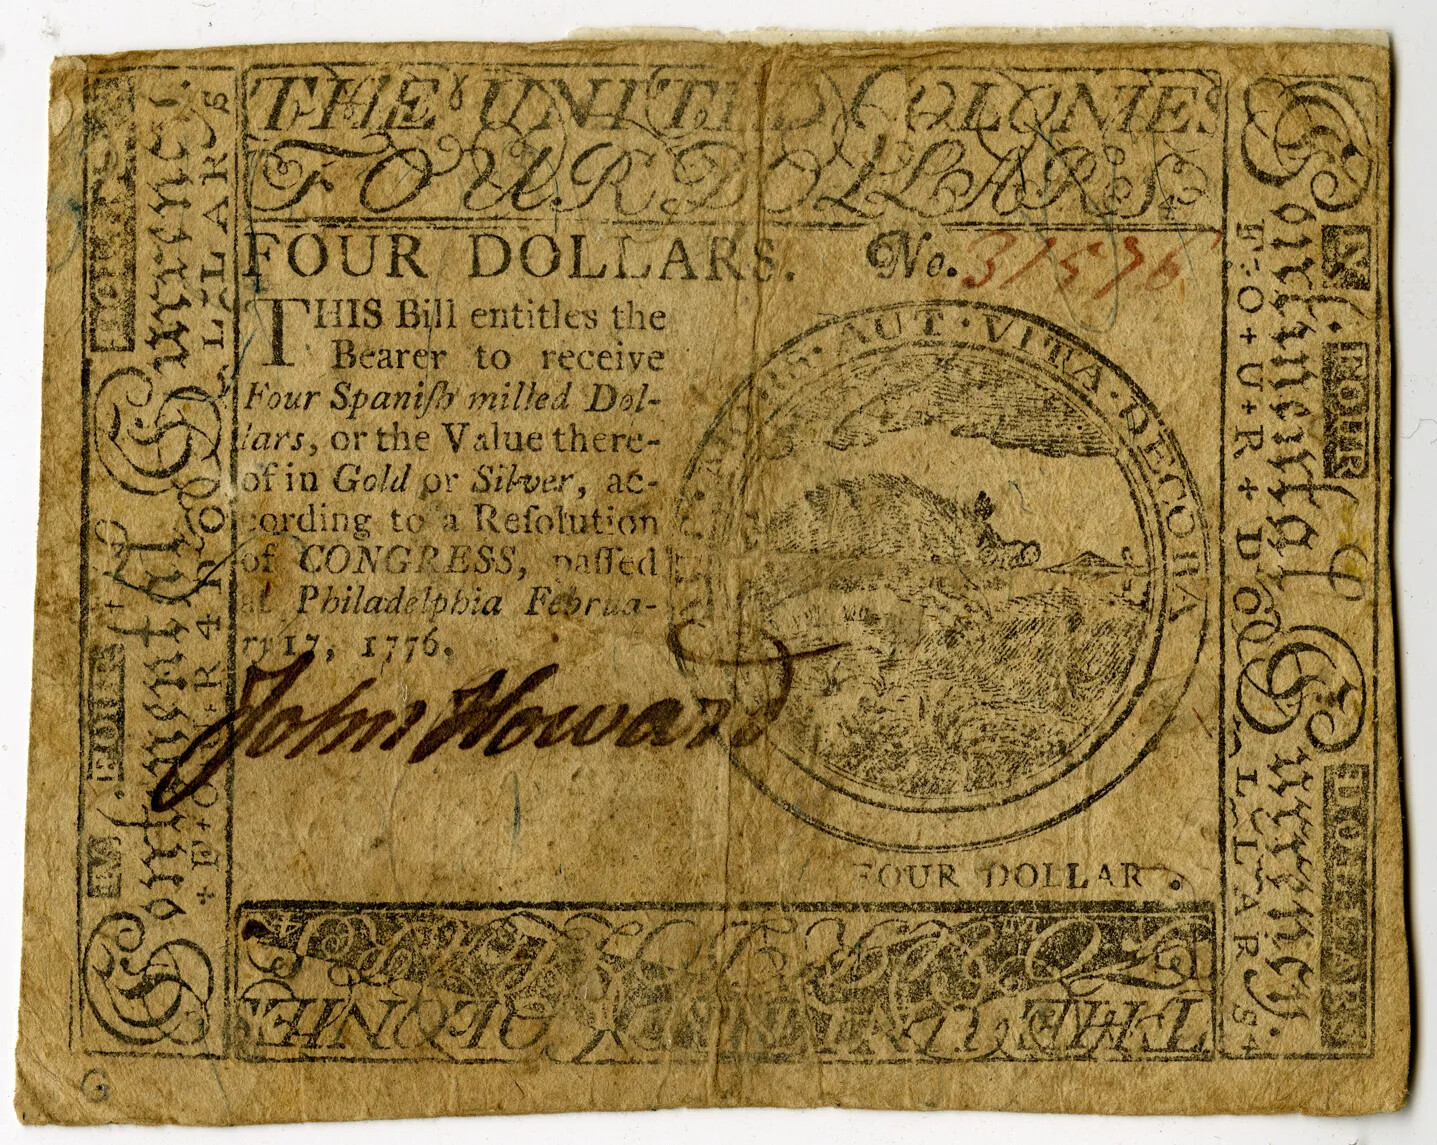 THE UNITED COLONIES
FOUR DOLLARS
FOUR DOLLARS. No. 31576
THIS Bill entitles the
Bearer to receive
Four Spaniſh milled Dol-
lars, or the Value there-
of in Gold or Silver, ac-
cording to a Reſolution
of CONGRESS, paſſed
at Philadelphia Februa-
ry 17, 1776.
AUT · VITA · DECORA
John Howard
FOUR DOLLAR
FOUR DOLLARS
THE UNITED COLONIES
Continental Currency.
F+O+U+R+DOLLARS
IN
FOUR
DOLLARS
Continental Currency.
FOUR 4 DOLLARS